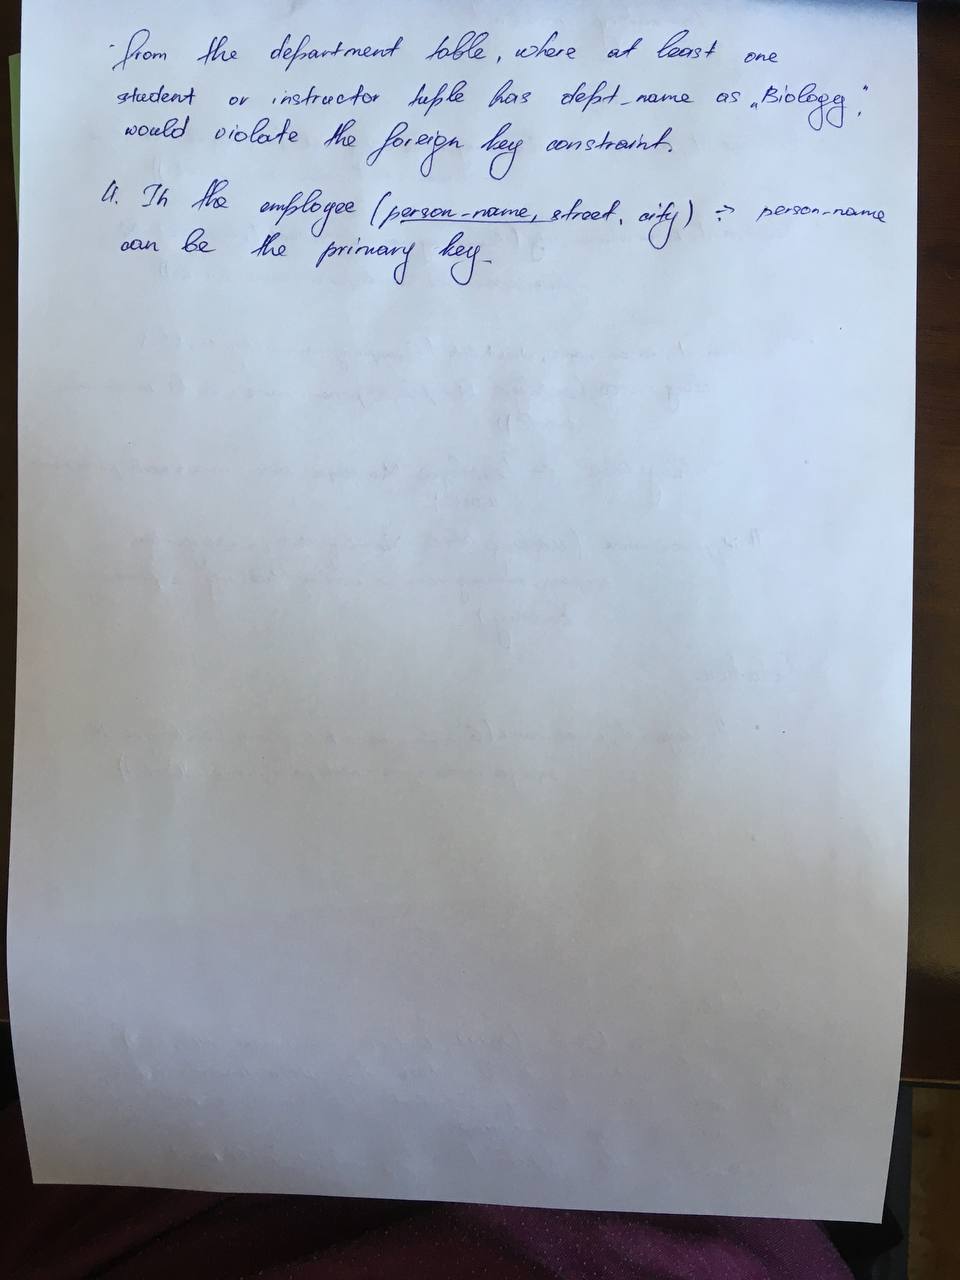 from the department table, where at least one
student or instructor tuple has dept_name as „Biology“,
would violate the foreign key constraint.
4. In the employee (person-name, street, city) → person-name
can be the primary key.